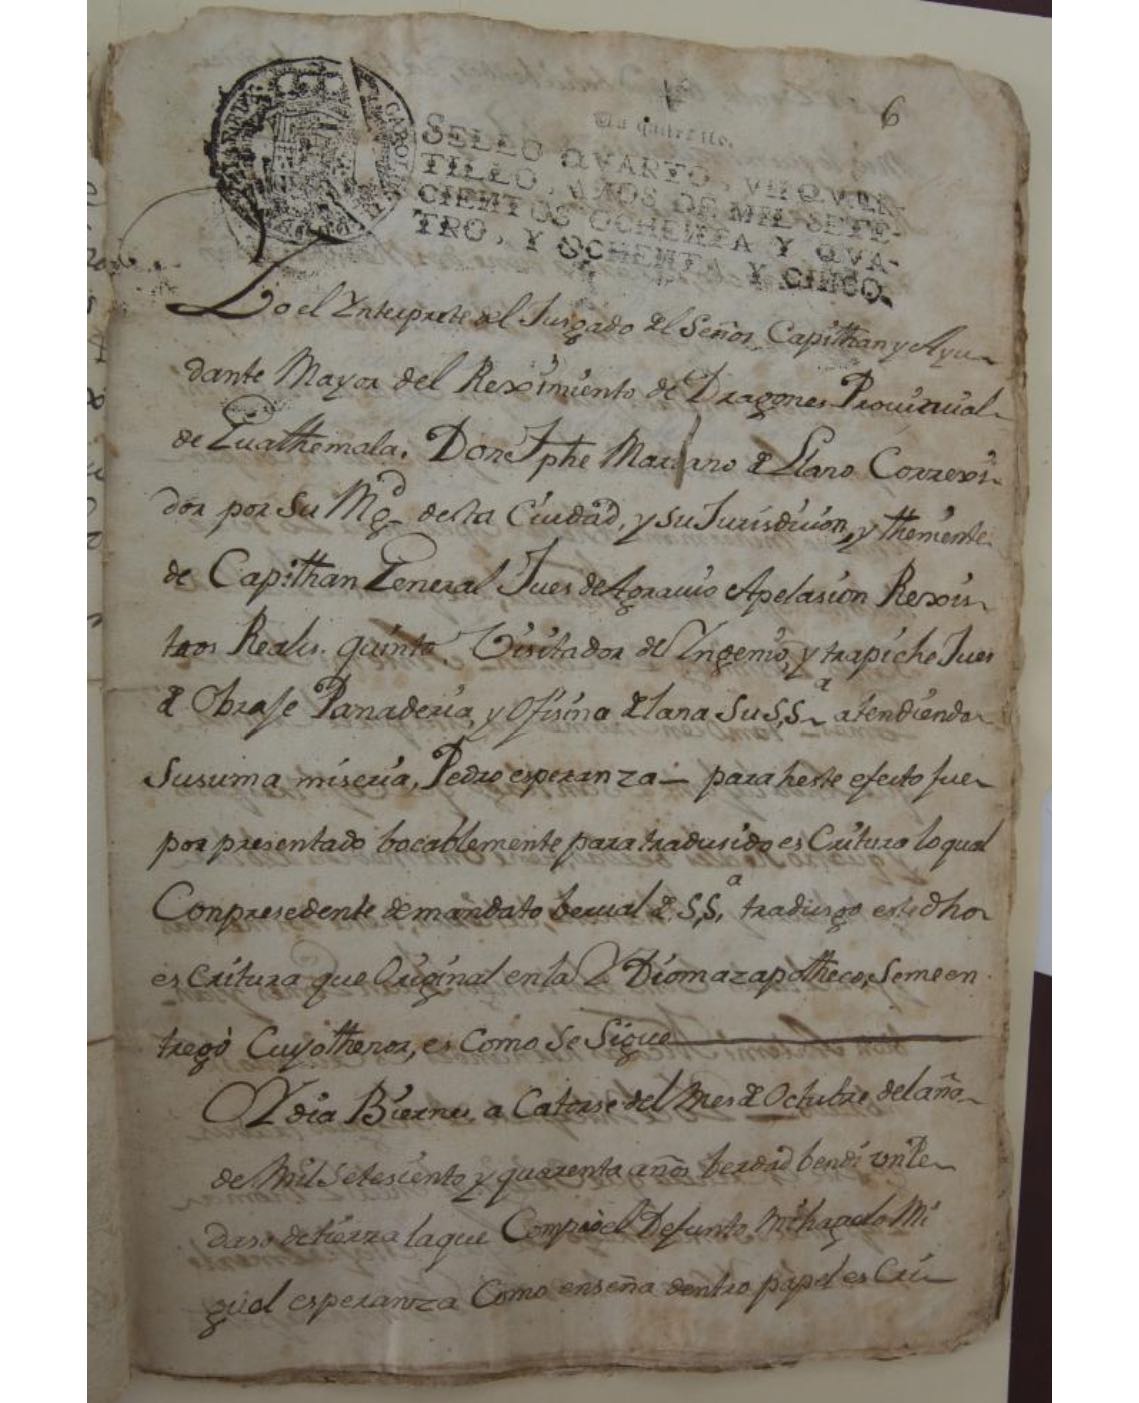 6
Un quartillo.
SELLO QVARTO, VN QVAR-
TILLO, AÑOS DE MIL SETE-
CIENTOS OCHENTA Y QVA-
TRO, Y OCHENTA Y CINCO.
Yo el Ynterprete del Jusgado del Señor Capithan y Ayu-
dante Mayor del Reximiento de Dragones Prouinxial
de Guathemala. Don Jphe Mariano de Llano Correxi-
dor por su Mgd. desta Ciudad, y su Jurisdicion, y theniente
de Capithan General Jues de Agrauio Apelasion Rexis-
tros Reales. quinto. Visitador de Yngenio, y trapiche Jues
de Obraje Panaderia, y Ofisina de lana Su S.Sa atendiendo
Susuma miseria, Pedro esperanza — para heste efecto fue
por presentado bocablemente para tradusido es Crituro lo qual
Conpresedente de mandato berual de S.Sa. tradusgo este dho
es Critura que Original en la Y Dioma zapotheco, Seme en
tregò Cuyo thenor, es Como Se Sigue
Oy dia Biernes. a Catorse del Mes de Octubre del año
de Mil Setesiento y quarenta años berdad bendi vn Pe-
daso de tierra laque Comprò el Defunto Mi haguelo Mi
guel esperanza Como enseña dentro papel es Cri-